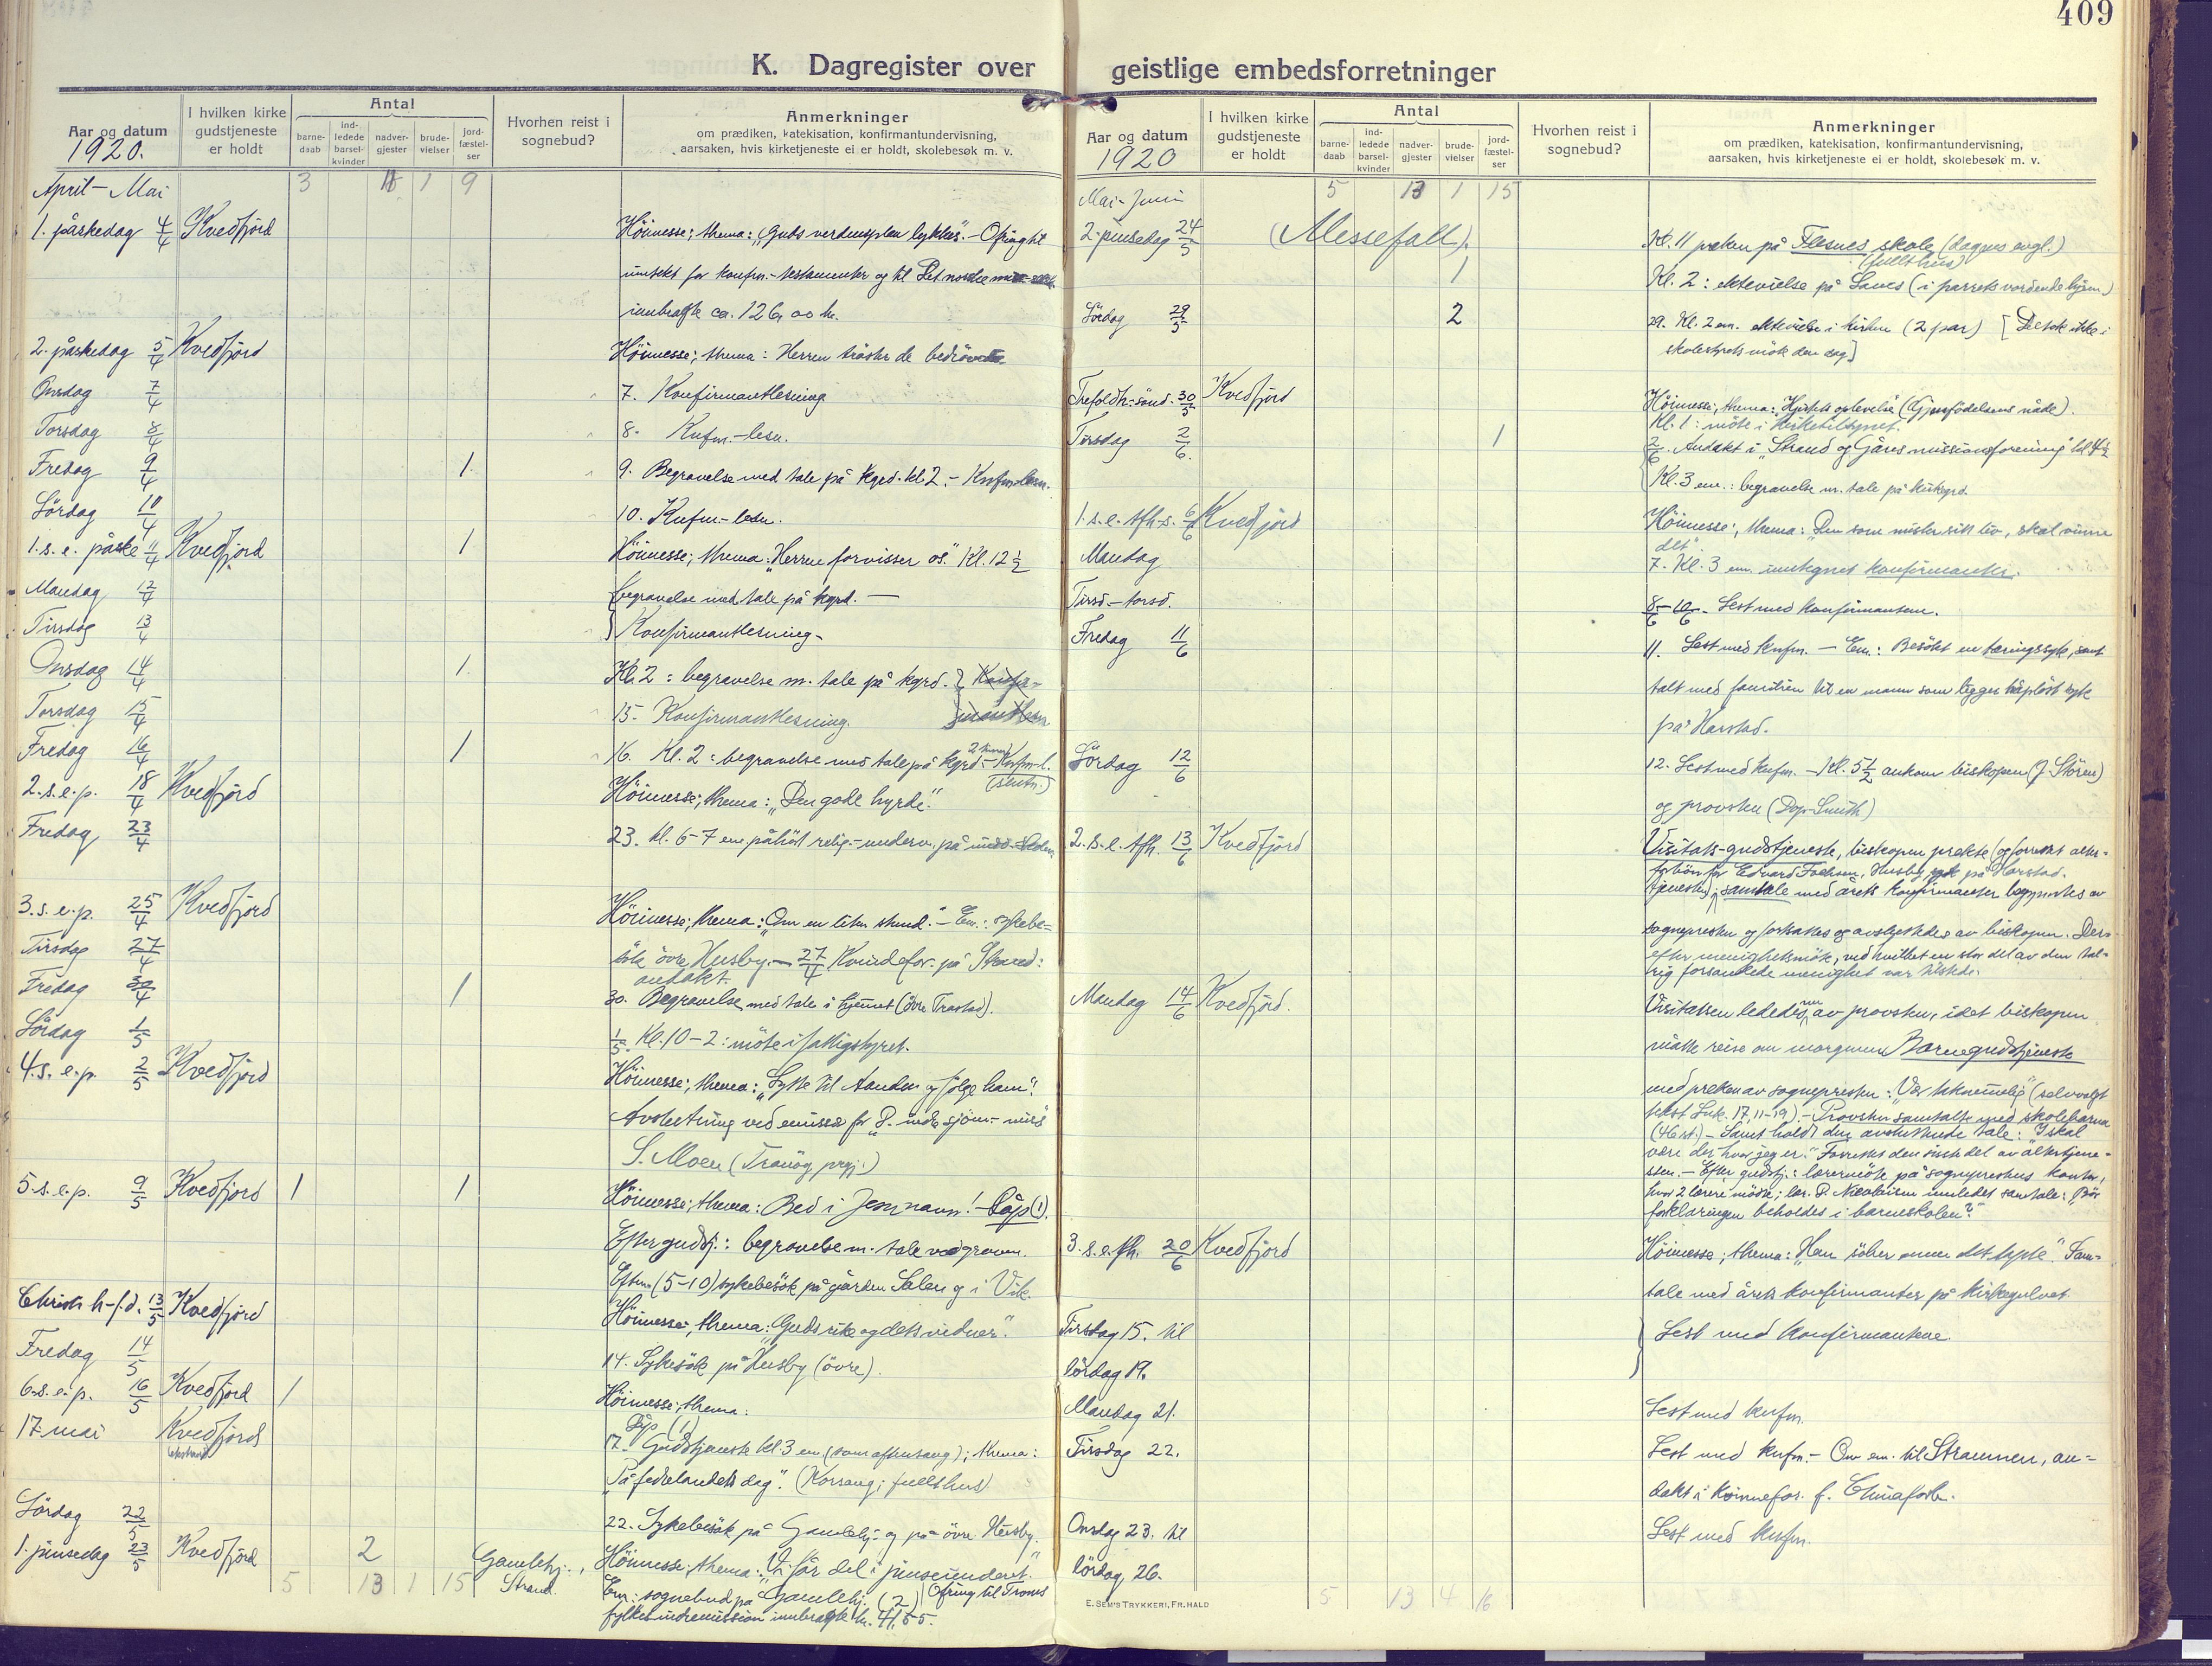 409
K. Dagregister over geistlige embedsforretninger
Aar og datum
1920.
I hvilken kirke gudstjeneste er holdt
Antal
barne-daab
ind-ledede barsel-kvinder
nadver-gjester
brude-vielser
jord-fæstel-ser
Hvorhen reist i sognebud?
Anmerkninger
om prædiken, katekisation, konfirmantundervisning,
aarsaken, hvis kirketjeneste ei er holdt, skolebesøk m. v.
April – Mai 3 1 9
1. påskedag 4/4 Kvedfjord Höimesse; thema: „Guds verdensplan lykkes". – Ofring til
inntekt for konfm.-testamenter og til Det norske
innbragte ca. 126,00 kr.
2. påskedag 5/4 Kvedfjord Höimesse; thema: Herren tröster de bedrövede.
Onsdag 7/4 7. Konfirmantlesning
Torsdag 8/4 8. Knfm.-lesn.
Fredag 9/4 1 9. Begravelse med tale på kgrd. kl. 2. – Knfm.lesn.
Lördag 10/4 10. Knfm.-lesn.
1. s. e. påske 11/4 Kvedfjord 1 Höimesse; thema: „Herren forvisser os." Kl. 12 1/2
Mandag 12/4 begravelse med tale på kgrd. —
Tirsdag 13/4 Konfirmantlesning –
Onsdag 14/4 1 Kl. 2: begravelse m. tale på kgrd.
Torsdag 15/4 15. Konfirmantlesning.
Fredag 16/4 1 16. Kl. 2: begravelse med tale på kgrd. – Knfm.-l.
2. s. e. p. 18/4 Kvedfjord Höimesse; thema: „Den gode hyrde."
Fredag 23/4 23. Kl. 6–7 em påhört relig.-underv. på
3. s. e. p. 25/4 Kvedfjord Höimesse; thema: „Om en liten stund." – Em.: sykebe-
Tirsdag 27/4 sök övre Husby. – 27/4 Kvindefor. på Strand:
andakt.
Fredag 30/4 1 30. Begravelse med tale i hjemmet (övre Trastad).
Lördag 1/5 1/5. Kl. 10–2: möte i fattigstyret.
4. s. e. p. 2/5 Kvedfjord Höimesse; thema: „Lytte til Aanden og følge ham"!
Avslutning ved emissær for „D. indre sjöm.-miss"
S. Moen (Tranöy prgj.)
5. s. e. p. 9/5 Kvedfjord 1 1 Höimesse; thema: Bed i Jesu navn! – Dåp (1).
Efter gudstj.: begravelse m. tale ved graven.
Eftm. (5–10) sykebesök på gården Salen og i Vik.
Christi h-f.d. 13/5 Kvedfjord Höimesse; thema: „Guds rike og dets vidner".
Fredag 14/5 14. Sykesök på Husby (övre).
6. s. e. p. 16/5 Kvedfjord 1 Höimesse; thema:
Dåp (1)
17. mai Kvedfjord 17. Gudstjeneste kl 3 em (som aftensang); thema:
„På fedrelandets dag". (Korsang; fullt hus)
Lördag 22/5 22. Sykebesök på Gamlehj. og på övre Husby.
1. pinsedag 23/5 Kvedfjord 2 Gamlehj., Höimesse; thema: „Vi får del i pinseunderet."
5 13 1 15 Strand. Em: sognebud på Gamlehj. (2) Ofring til Troms
fylkes indremission innbragte kr. 41,55.
Aar og datum
1920
I hvilken kirke gudstjeneste er holdt
Antal
barne-daab
ind-ledede barsel-kvinder
nadver-gjester
brude-vielser
jord-fæstel-ser
Hvorhen reist i sognebud?
Anmerkninger
om prædiken, katekisation, konfirmantundervisning,
aarsaken, hvis kirketjeneste ei er holdt, skolebesøk m. v.
Mai – Juni 5 13 1 15
2. pinsedag 24/5 (Messefall). Kl. 11 preken på Flesnes skole (dagens evgl.)
(fullt hus)
1 Kl. 2: ektevielse på Laves (i parrets vordende hjem)
Lördag 29/5 2 29. Kl. 2 em. ektevielse i kirken (2 par) [Deltok ikke i
skolestyrets möte den dag]
Trefoldh.-sönd. 30/5 Kvedfjord Höimesse; thema: „Hjertets oplevelse (Gjenfödelsens nåde).
Kl. 1: möte i kirketilsynet.
Tirsdag 2/6 1 2/6. Andakt i „Strand og Gåres missionsforening"
Kl. 3 em.: begravelse m. tale på kirkegrd.
1. s. e. tfh-s. 6/6 Kvedfjord Höimesse; thema: „Den som mister sitt liv, skal vinne
det".
Mandag 7. Kl. 3 em. innskrevet konfirmanter.
Tirsd. – torsd. 8/6 – 10/6. Lest med konfirmantene.
Fredag 11/6 11. Lest med knfm. – Em.: Besökt en tæringssyk, samt
talt med familien til en mann som ligger håplöst syk
på Harstad.
Lördag 12/6 12. Lest med knfm. – Kl. 5 1/2 ankom biskopen (J. Stören)
og provsten (Dop-Smith)
2. s. e. tfh. 13/6 Kvedfjord Visitats-gudstjeneste, biskopen prekte (og forrettet alter-
forbön for Edvard Husby, syk på Harstad.
tjenesten); samtale med årets konfirmanter begyntes av
sognepresten og fortsattes og avsluttedes av biskopen. Der-
efter menighetsmöte, ved hvilket en stor del av den tal-
rig forsamlede menighet var tilstede.
Mandag 14/6 Kvedfjord. Visitatsen lededes nu av provsten, idet biskopen
måtte reise om morgenen. Barnegudstjeneste
med preken av sognepresten: „Vær taknemmelig" (selvvalgt
tekst Luk. 17, 11–19). – Provsten samtalte med skolebarna
(46 st.) – Samt holdt den avsluttende tale: „I skal
være der hvor jeg er." Forrettet den siste del av altertjene-
sten. – Efter gudstj.: lærermöte på sogneprestens kontor,
hvor 2 lærere mötte; lær. P. Nicolaisen innledet samtale: „Bör
forklaringen beholdes i barneskolen?"
3. s. e. tfh. 20/6 Kvedfjord Höimesse; thema: „Han söker det tapte". Sam-
tale med årets konfirmanter på kirkegulvet
Tirsdag 15. til Lest med konfirmantene.
lördag 19.
Mandag 21. Lest med knfm.
Tirsdag 22. Lest med knfm – Om em. til Straumen, an-
dakt i kvinnefor. f. Chinaforb.
Onsdag 23. til Lest med knfm.
lördag 26.
5 13 4 16
E. SEM'S TRYKKERI, FR.HALD